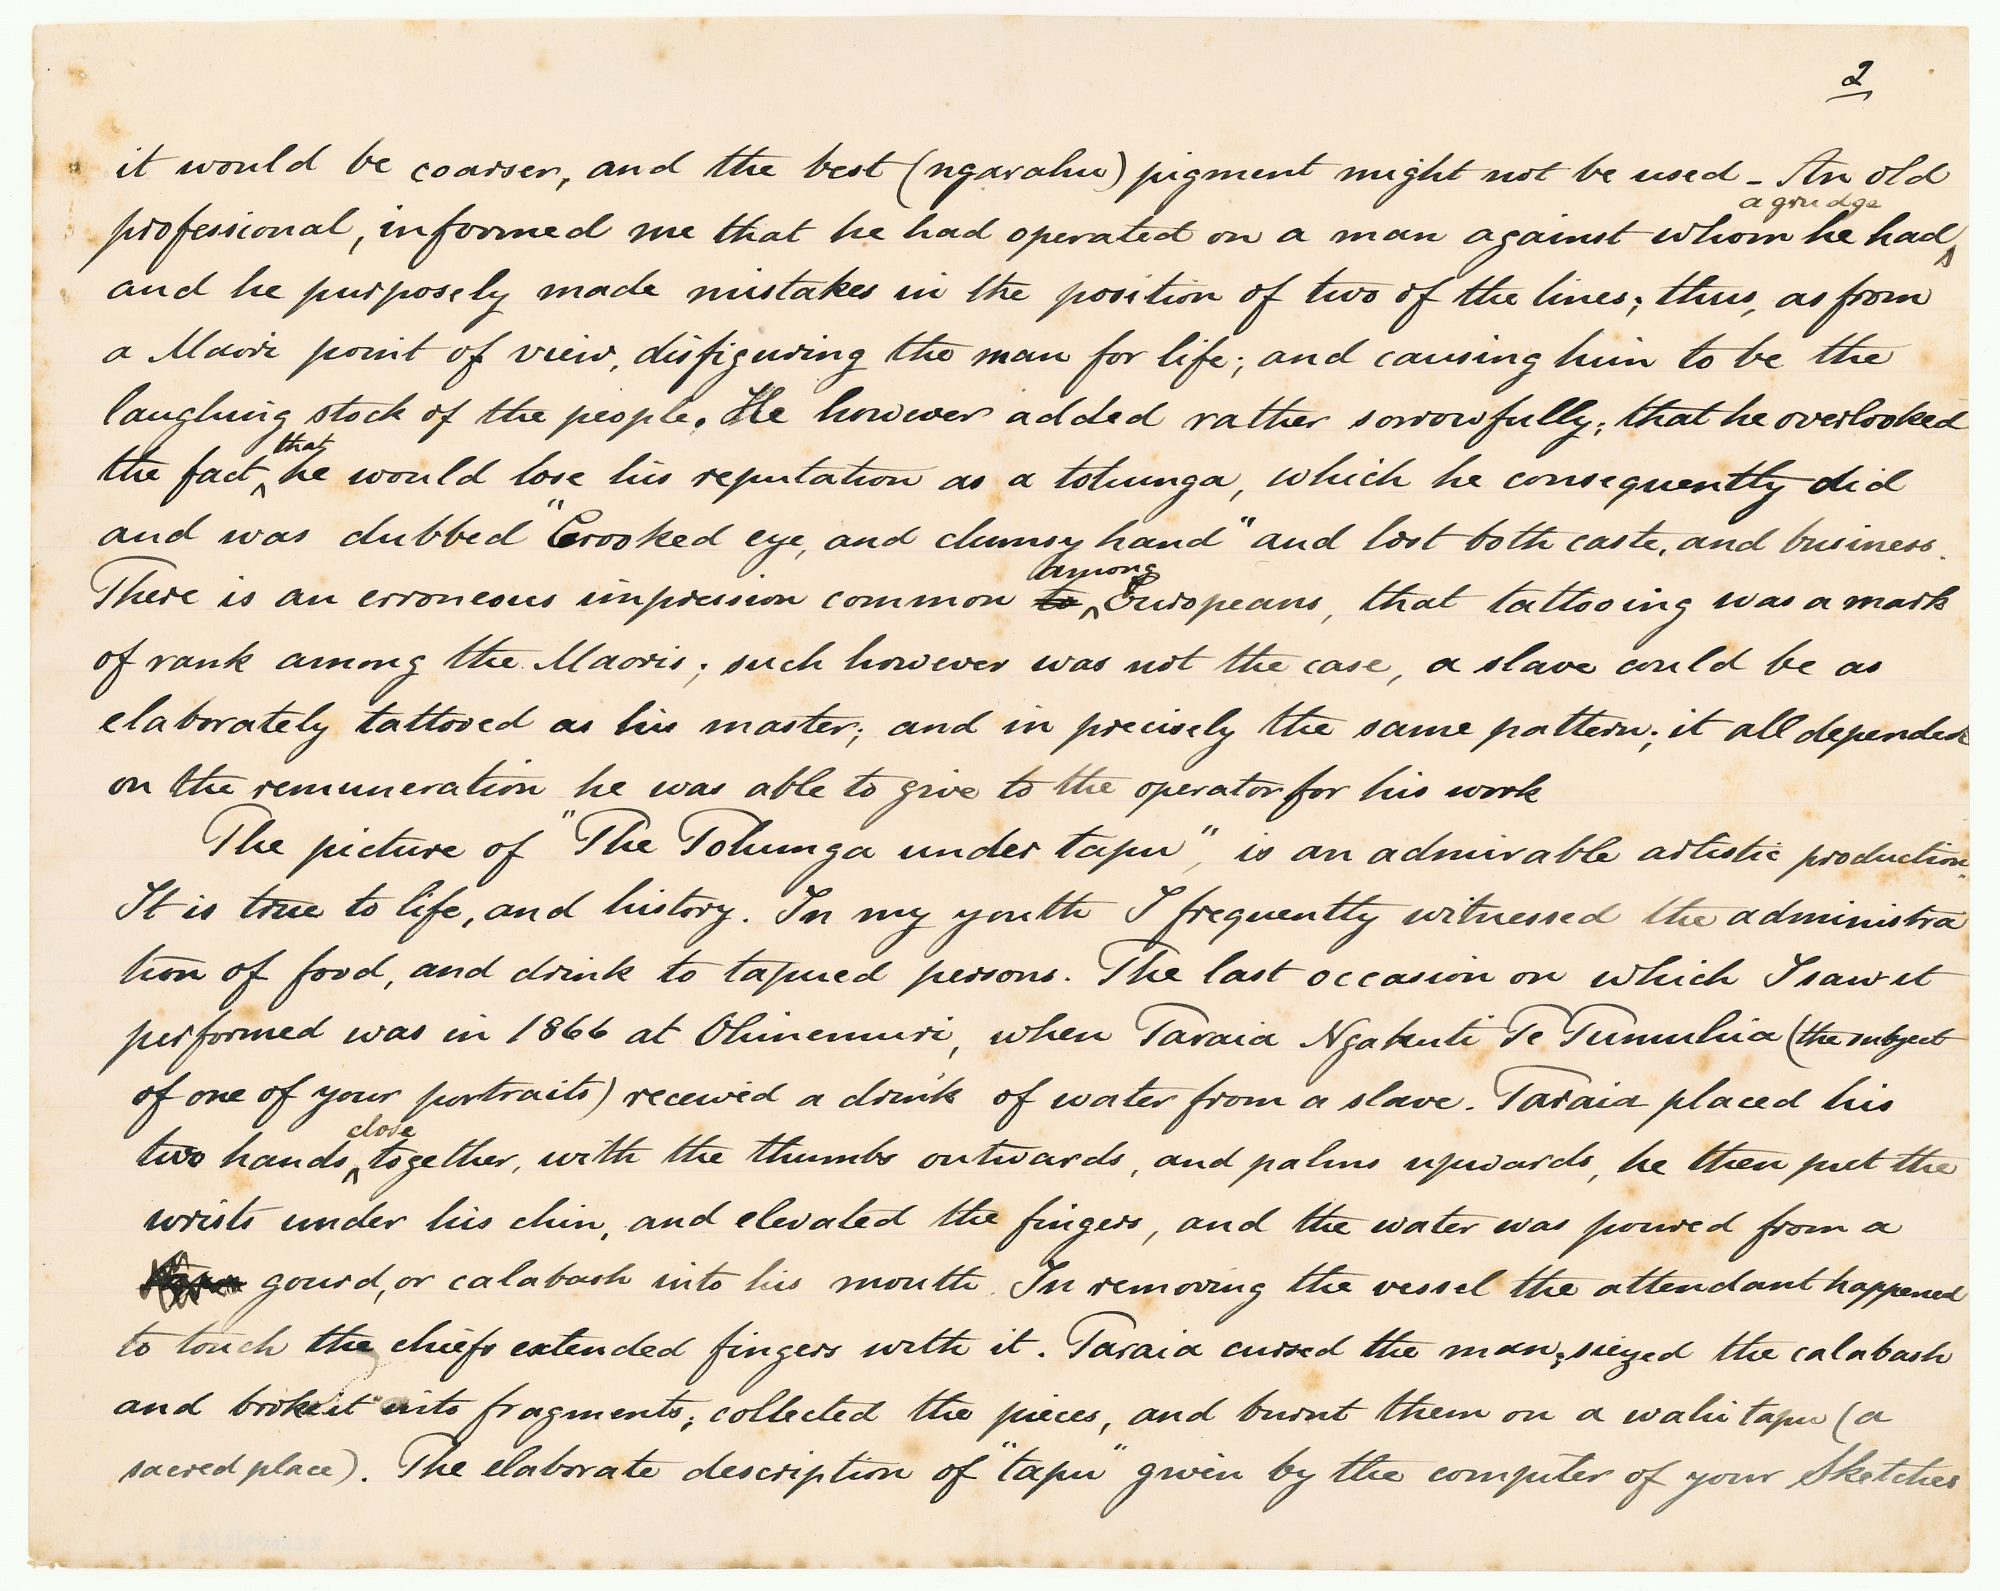 2
it would be coarser, and the best (ngarahu) pigment might not be used - An old
professional, informed me that he had operated on a man against whom he had a grudge
and he purposely made mistakes in the position of two of the lines; thus, as from
a Maori point of view, disfiguring the man for life; and causing him to be the
laughing stock of the people. He however added rather sorrowfully; that he overlooked
the fact that he would lose his reputation as a tohunga, which he consequently did
and was dubbed "Crooked eye, and clumsy hand" and lost both caste, and business.
There is an erroneous impression common to among Europeans, that tattooing was a mark
of rank among the Maoris; such however was not the case, a slave could be as
elaborately tattooed as his master; and in precisely the same pattern; it all depended
on the remuneration he was able to give to the operator for his work
The picture of "The Tohunga under tapu", is an admirable artistic production.
It is true to life, and history. In my youth I frequently witnessed the administra
tion of food, and drink to tapued persons. The last occasion on which I saw it
performed was in 1866 at Ohinemuri, when Taraia Ngakuti Te Tumuhia (the subject
of one of your portraits) received a drink of water from a slave. Taraia placed his
two hands close together, with the thumbs outwards, and palms upwards, he then put the
wrists under his chin, and elevated the fingers, and the water was poured from a
gourd, or calabash into his mouth. In removing the vessel the attendant happened
to touch the chiefs extended fingers with it. Taraia cursed the man; siezed the calabash
and broke it into fragments; collected the pieces, and burnt them on a wahi tapu (a
sacred place). The elaborate description of "tapu" given by the computer of your Sketches